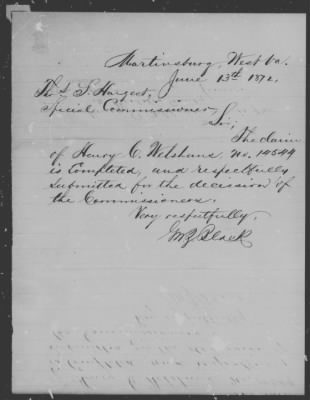 Martinsburg, West Va.
June 13th 1872.
Thos. S. Hargest,
Special Commissioner
Sir;
The claim
of Henry C. Welshans, No. 14544
is Completed, and respectfully
submitted for the decission of
the Commissioners.
Very respectfully,
Black